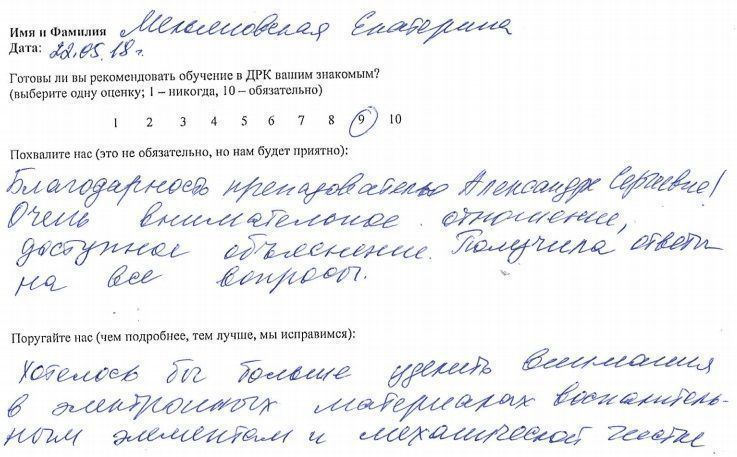 Имя и Фамилия Екатерина
Дата: 22.05.18г.
Готовы ли вы рекомендовать обучение в ДРК вашим знакомым?
(выберите одну оценку; 1 – никогда, 10 – обязательно)
1 2 3 4 5 6 7 8 9 10
Похвалите нас (это не обязательно, но нам будет приятно):
Благодарность преподавателю Александре Сергеевне!
Очень внимательное отношение,
доступное объяснение. Получила ответы
на все вопросы.
Поругайте нас (чем подробнее, тем лучше, мы исправимся):
Хотелось бы больше уделить внимания
в электронных материалах воспалитель-
ным элементам и механической чистке